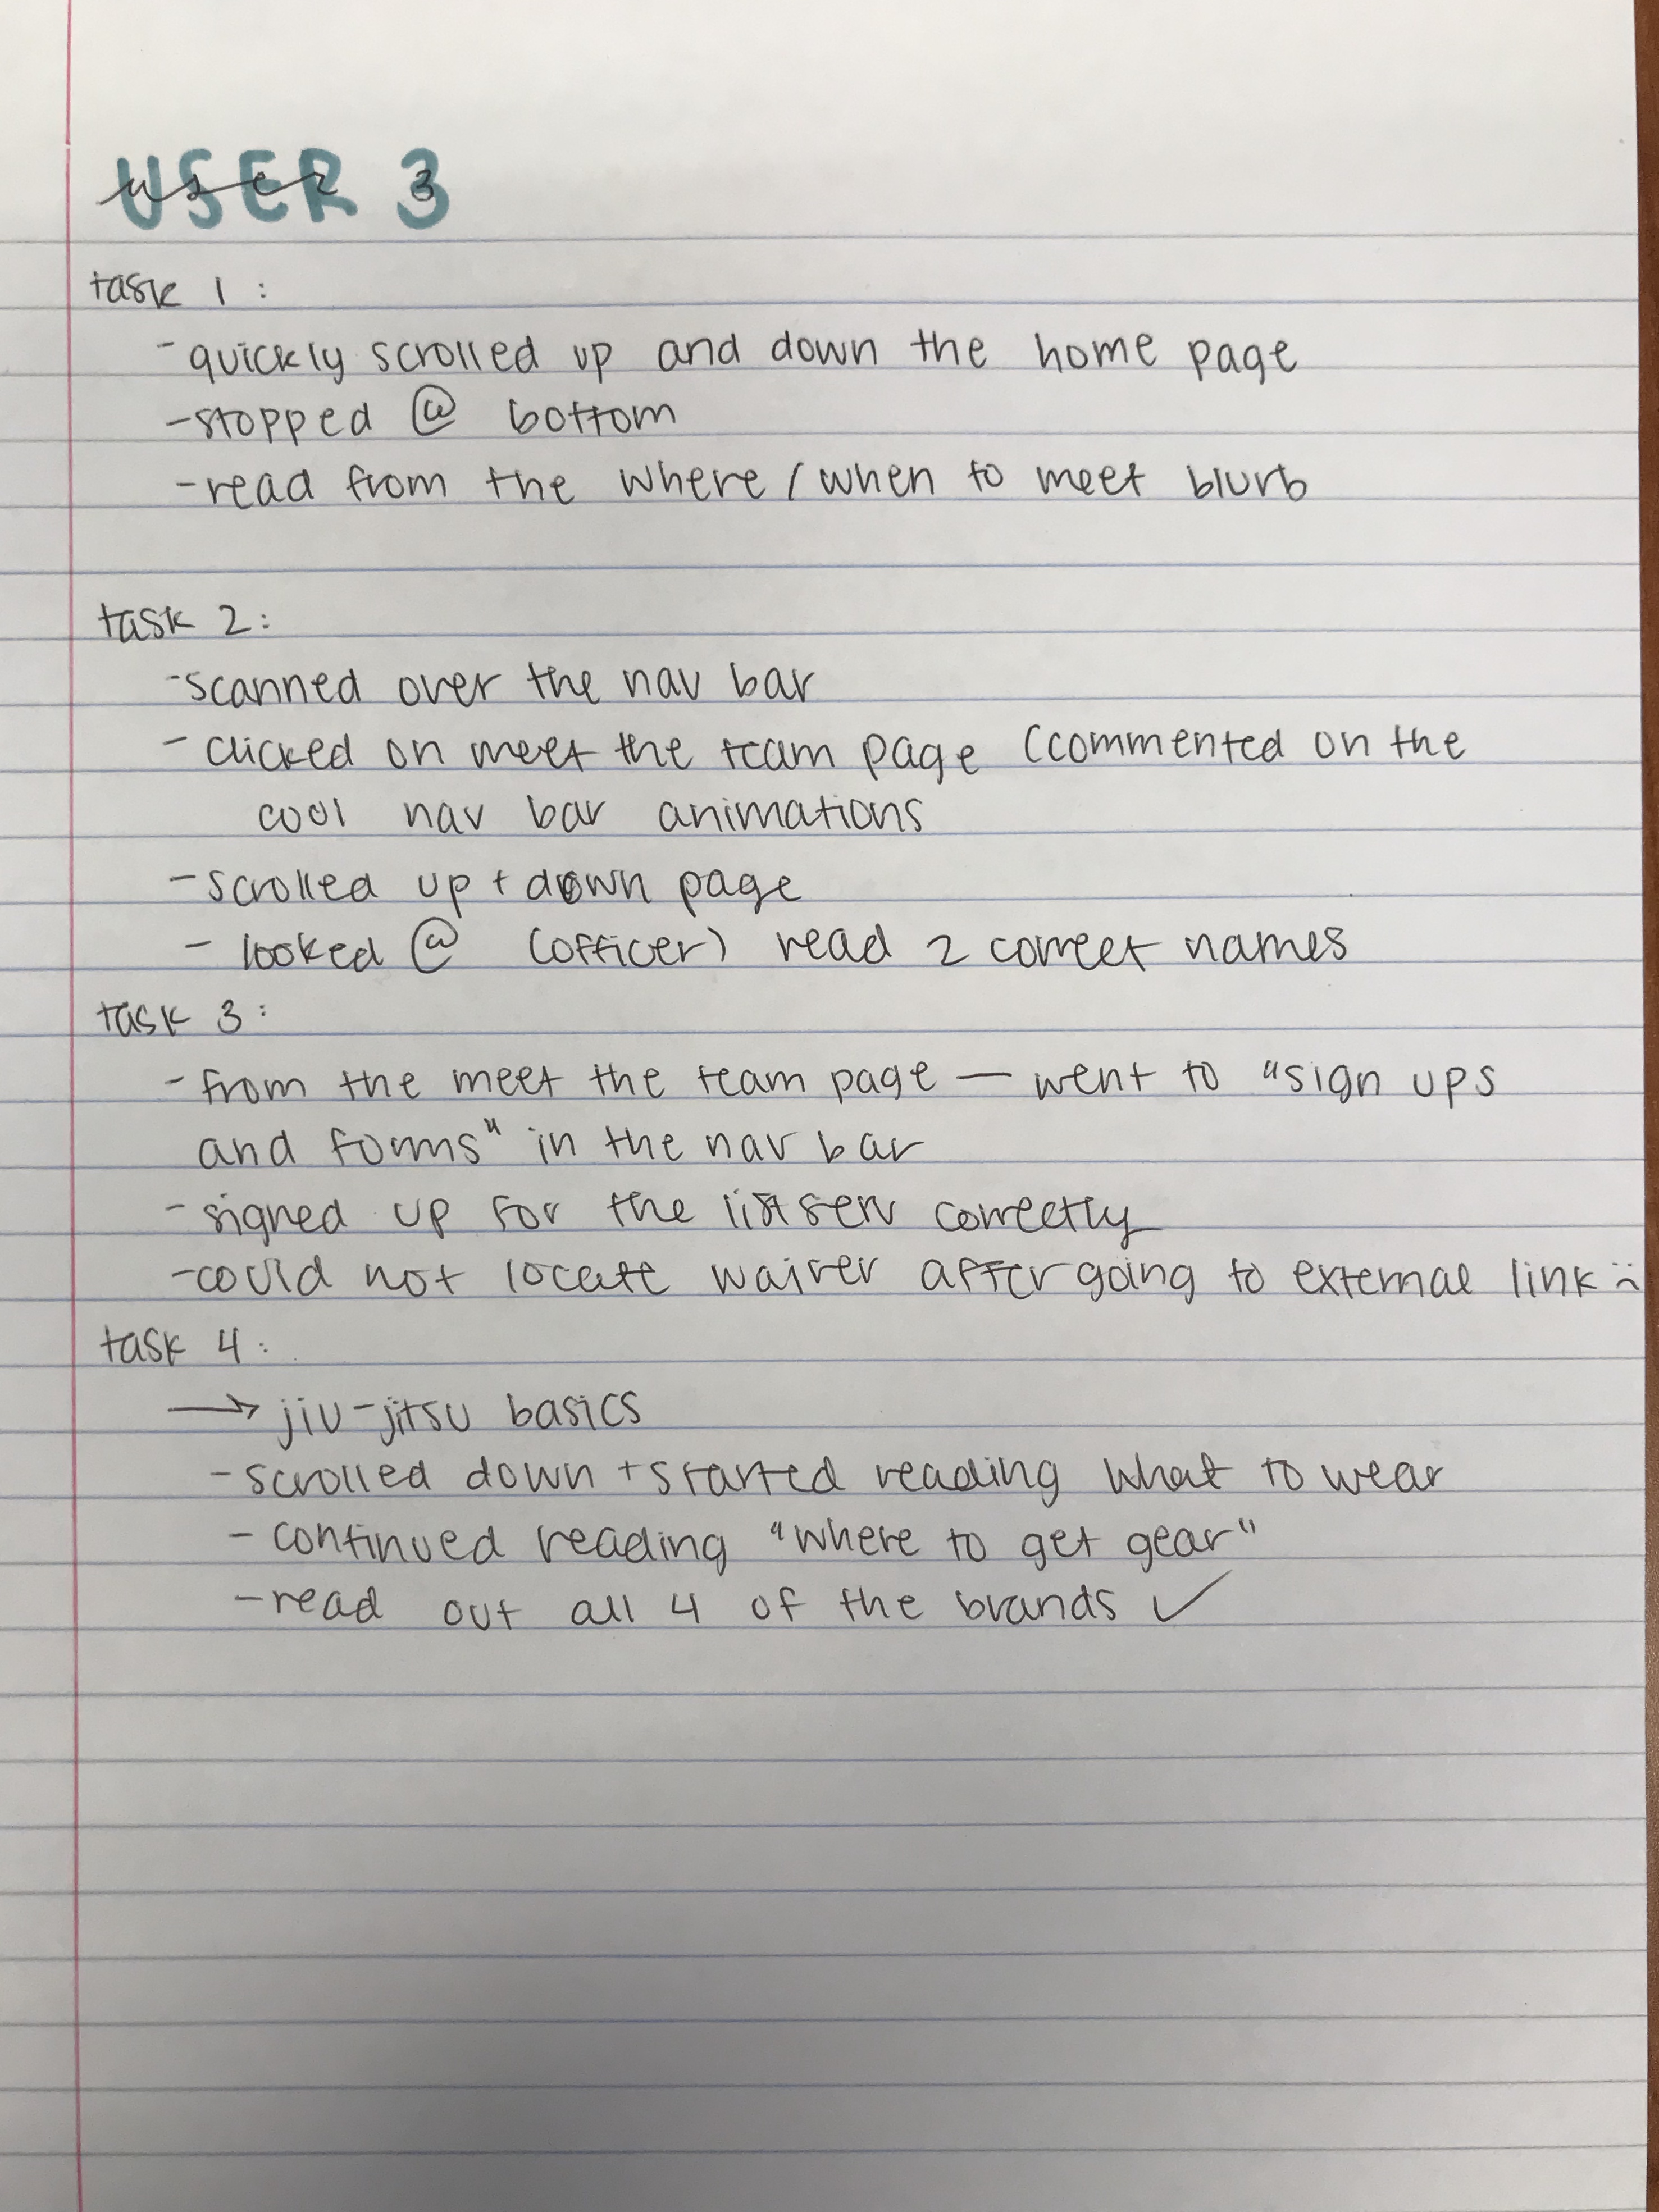 USER 3
task 1:
- quickly scrolled up and down the home page
- stopped @ bottom
- read from the where / when to meet blurb
task 2:
- scanned over the nav bar
- clicked on meet the team page (commented on the
cool nav bar animations
- scrolled up + down page
- looked @ (officer) read 2 correct names
task 3:
- from the meet the team page — went to "sign ups
and forms" in the nav bar
- signed up for the listserv correctly
- could not locate waiver after going to external link :(
task 4:
→ jiu-jitsu basics
- scrolled down + started reading what to wear
- continued reading "where to get gear"
- read out all 4 of the brands ✓